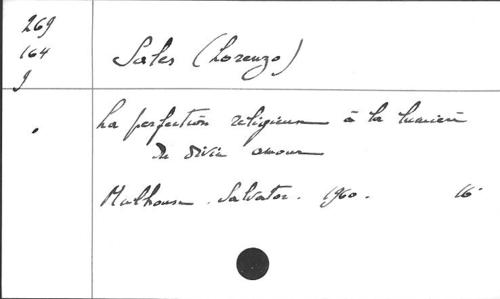 269
164
g
Sales (Lorenzo)
La perfection religieuse à la lumière
du divin amour
Mulhouse. Salvator. 1960. 16°